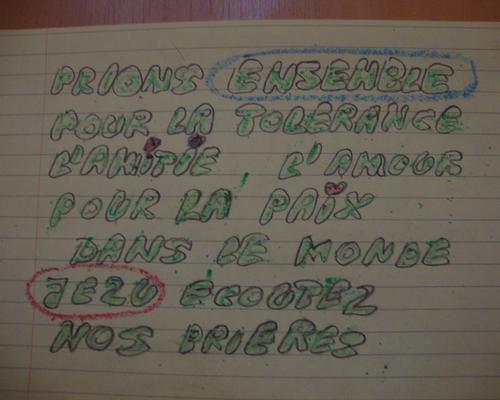 PRIONS ENSEMBLE
POUR LA TOLERANCE
L'AMITIE L'AMOUR
POUR LA PAIX
DANS LE MONDE
JEZU ECOUTEZ
NOS PRIERES